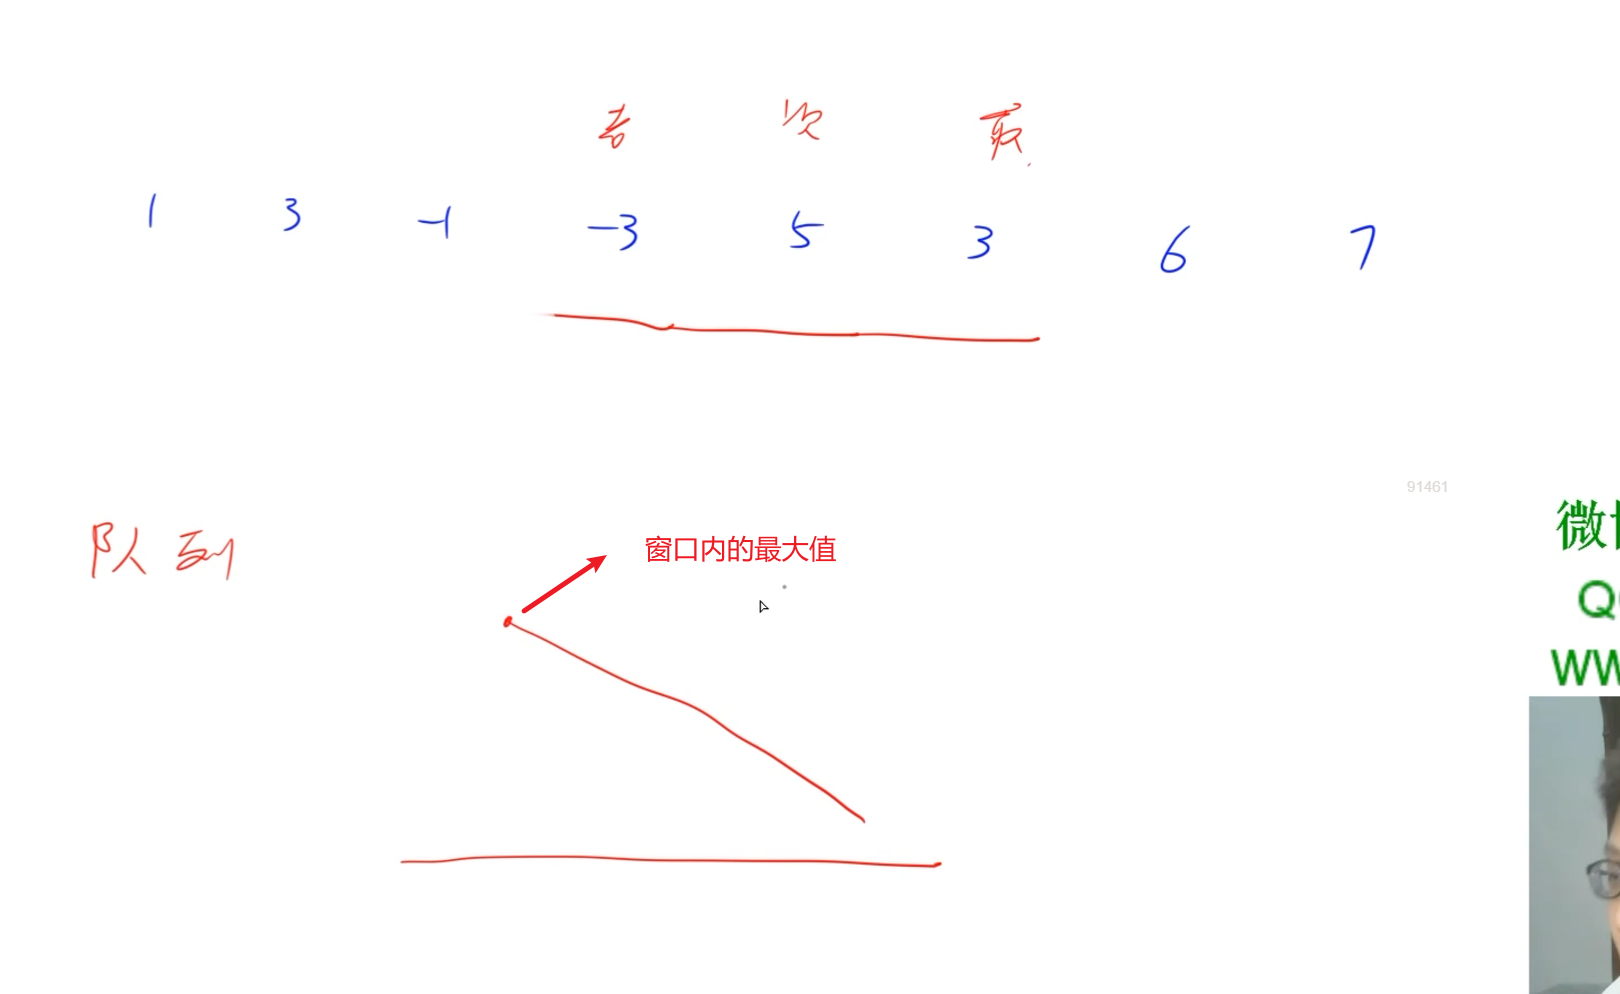 老 次 最
1 3 -1 -3 5 3 6 7
91461
微
队列
窗口内的最大值
Q
WW